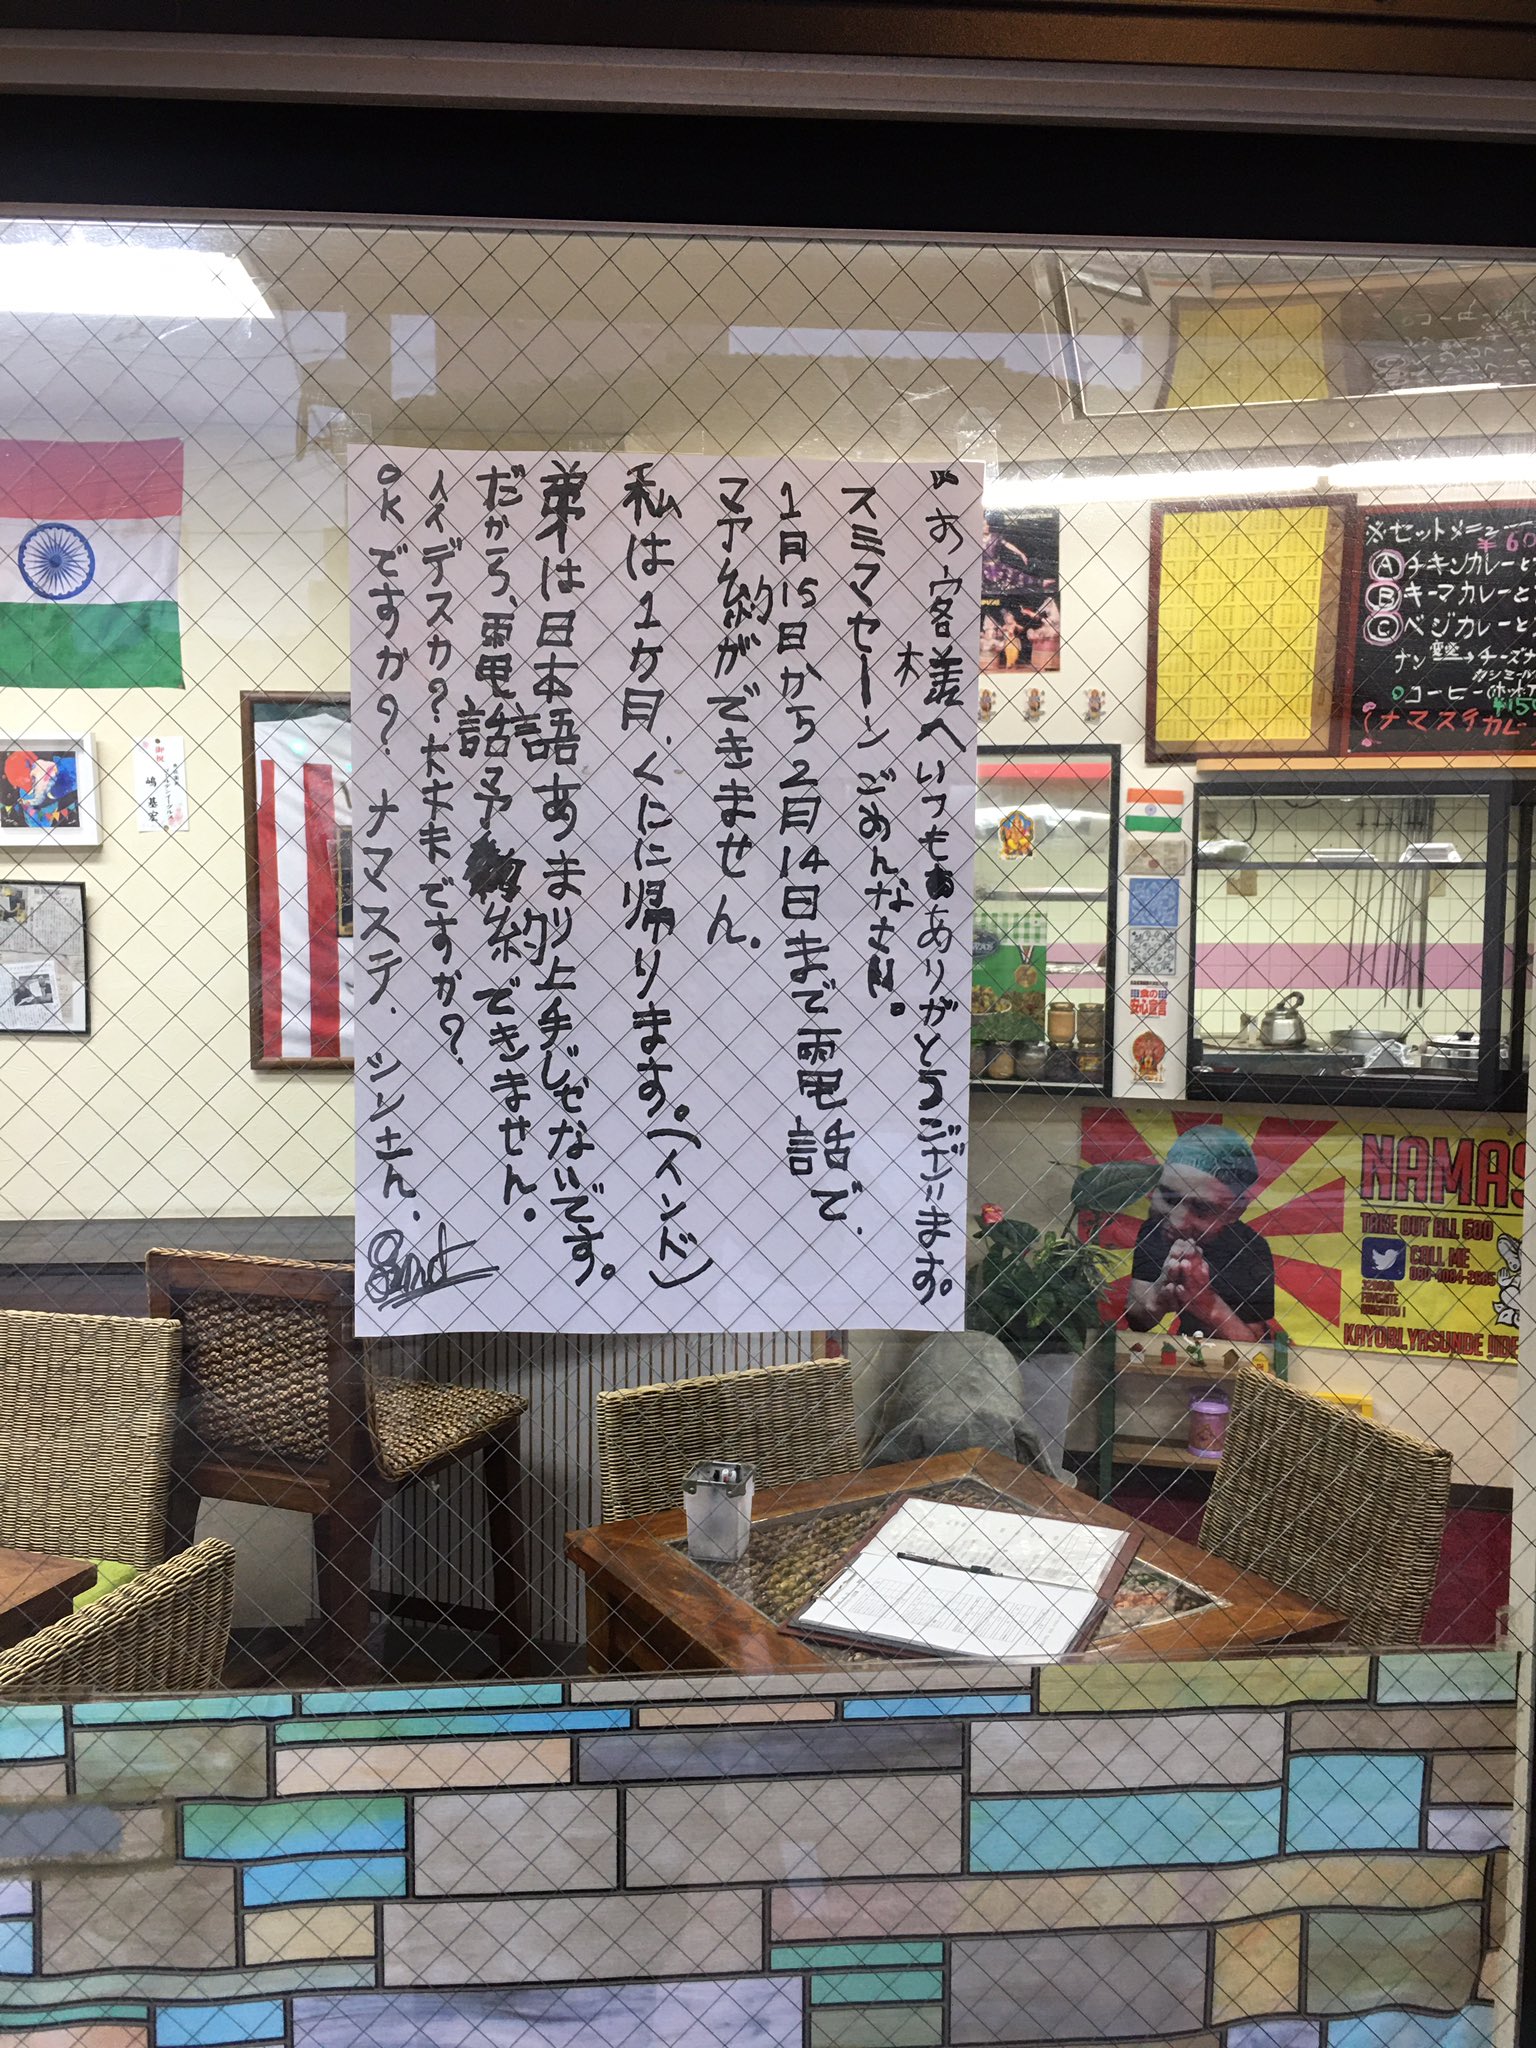 お客様へいつもありがとうございます。
スミマセーンごめんなさい。
1月15日から2月14日まで電話で、
予約ができません。
私は1ヶ月、くにに帰ります。(インド)
弟は日本語あまり上手じゃないです。
だから、電話予約できません。
イイデスカ?大丈夫ですか?
OKですか?ナマステ.シンさん.
※セットメニュー
¥60
Ⓐチキンカレーと
Ⓑキーマカレーと
Ⓒベジカレーと
ナン→チーズナ
カシミール
コーヒー(ホット
¥150
(ナマステカレー
食の
安心宣言
NAMAS
TAKE OUT ALL 500
CALL ME
080-4084-2685
KAYOBI,YASUNDE IIDE
嶋基宏